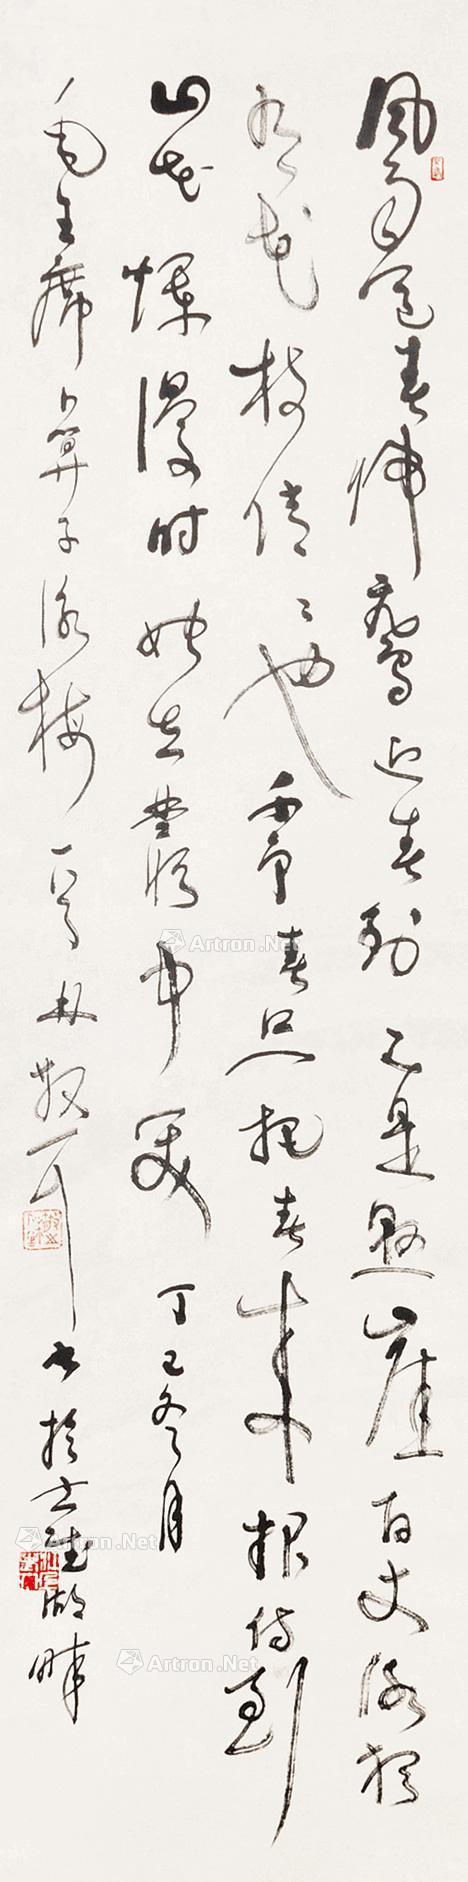 風雨送春歸飛雪迎春到已是懸崖百丈冰猶
有花枝俏俏也不爭春只把春來報待到
山花爛漫時她在叢中笑丁巳冬月
毛主席卜算子詠梅一首林散耳書於玄武湖畔
Artron.Net
Artron.Net
Artron.Net
Artron.Net